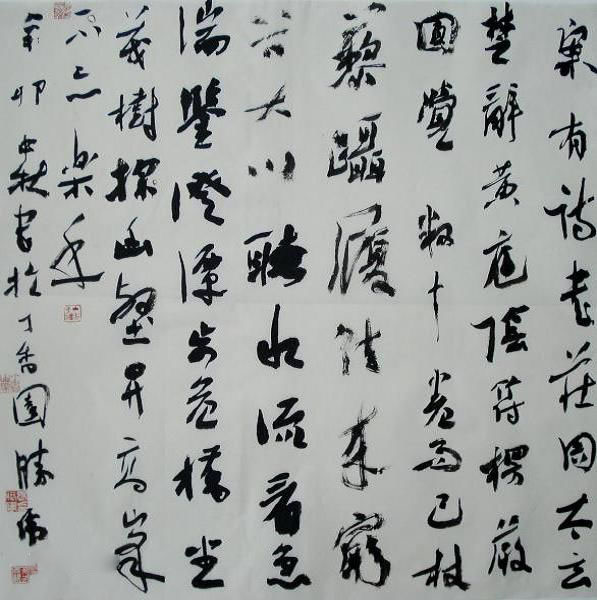 案有詩書莊周太玄
楚辭黄庭陰符楞嚴
圓覺數十卷而已杖
藜躡履往來窮
谷大川聽水流看急
湍鑒澄潭步危橋坐
茂樹探幽壑昇高峯
不亦樂乎
辛卯中秋書於丁香園勝